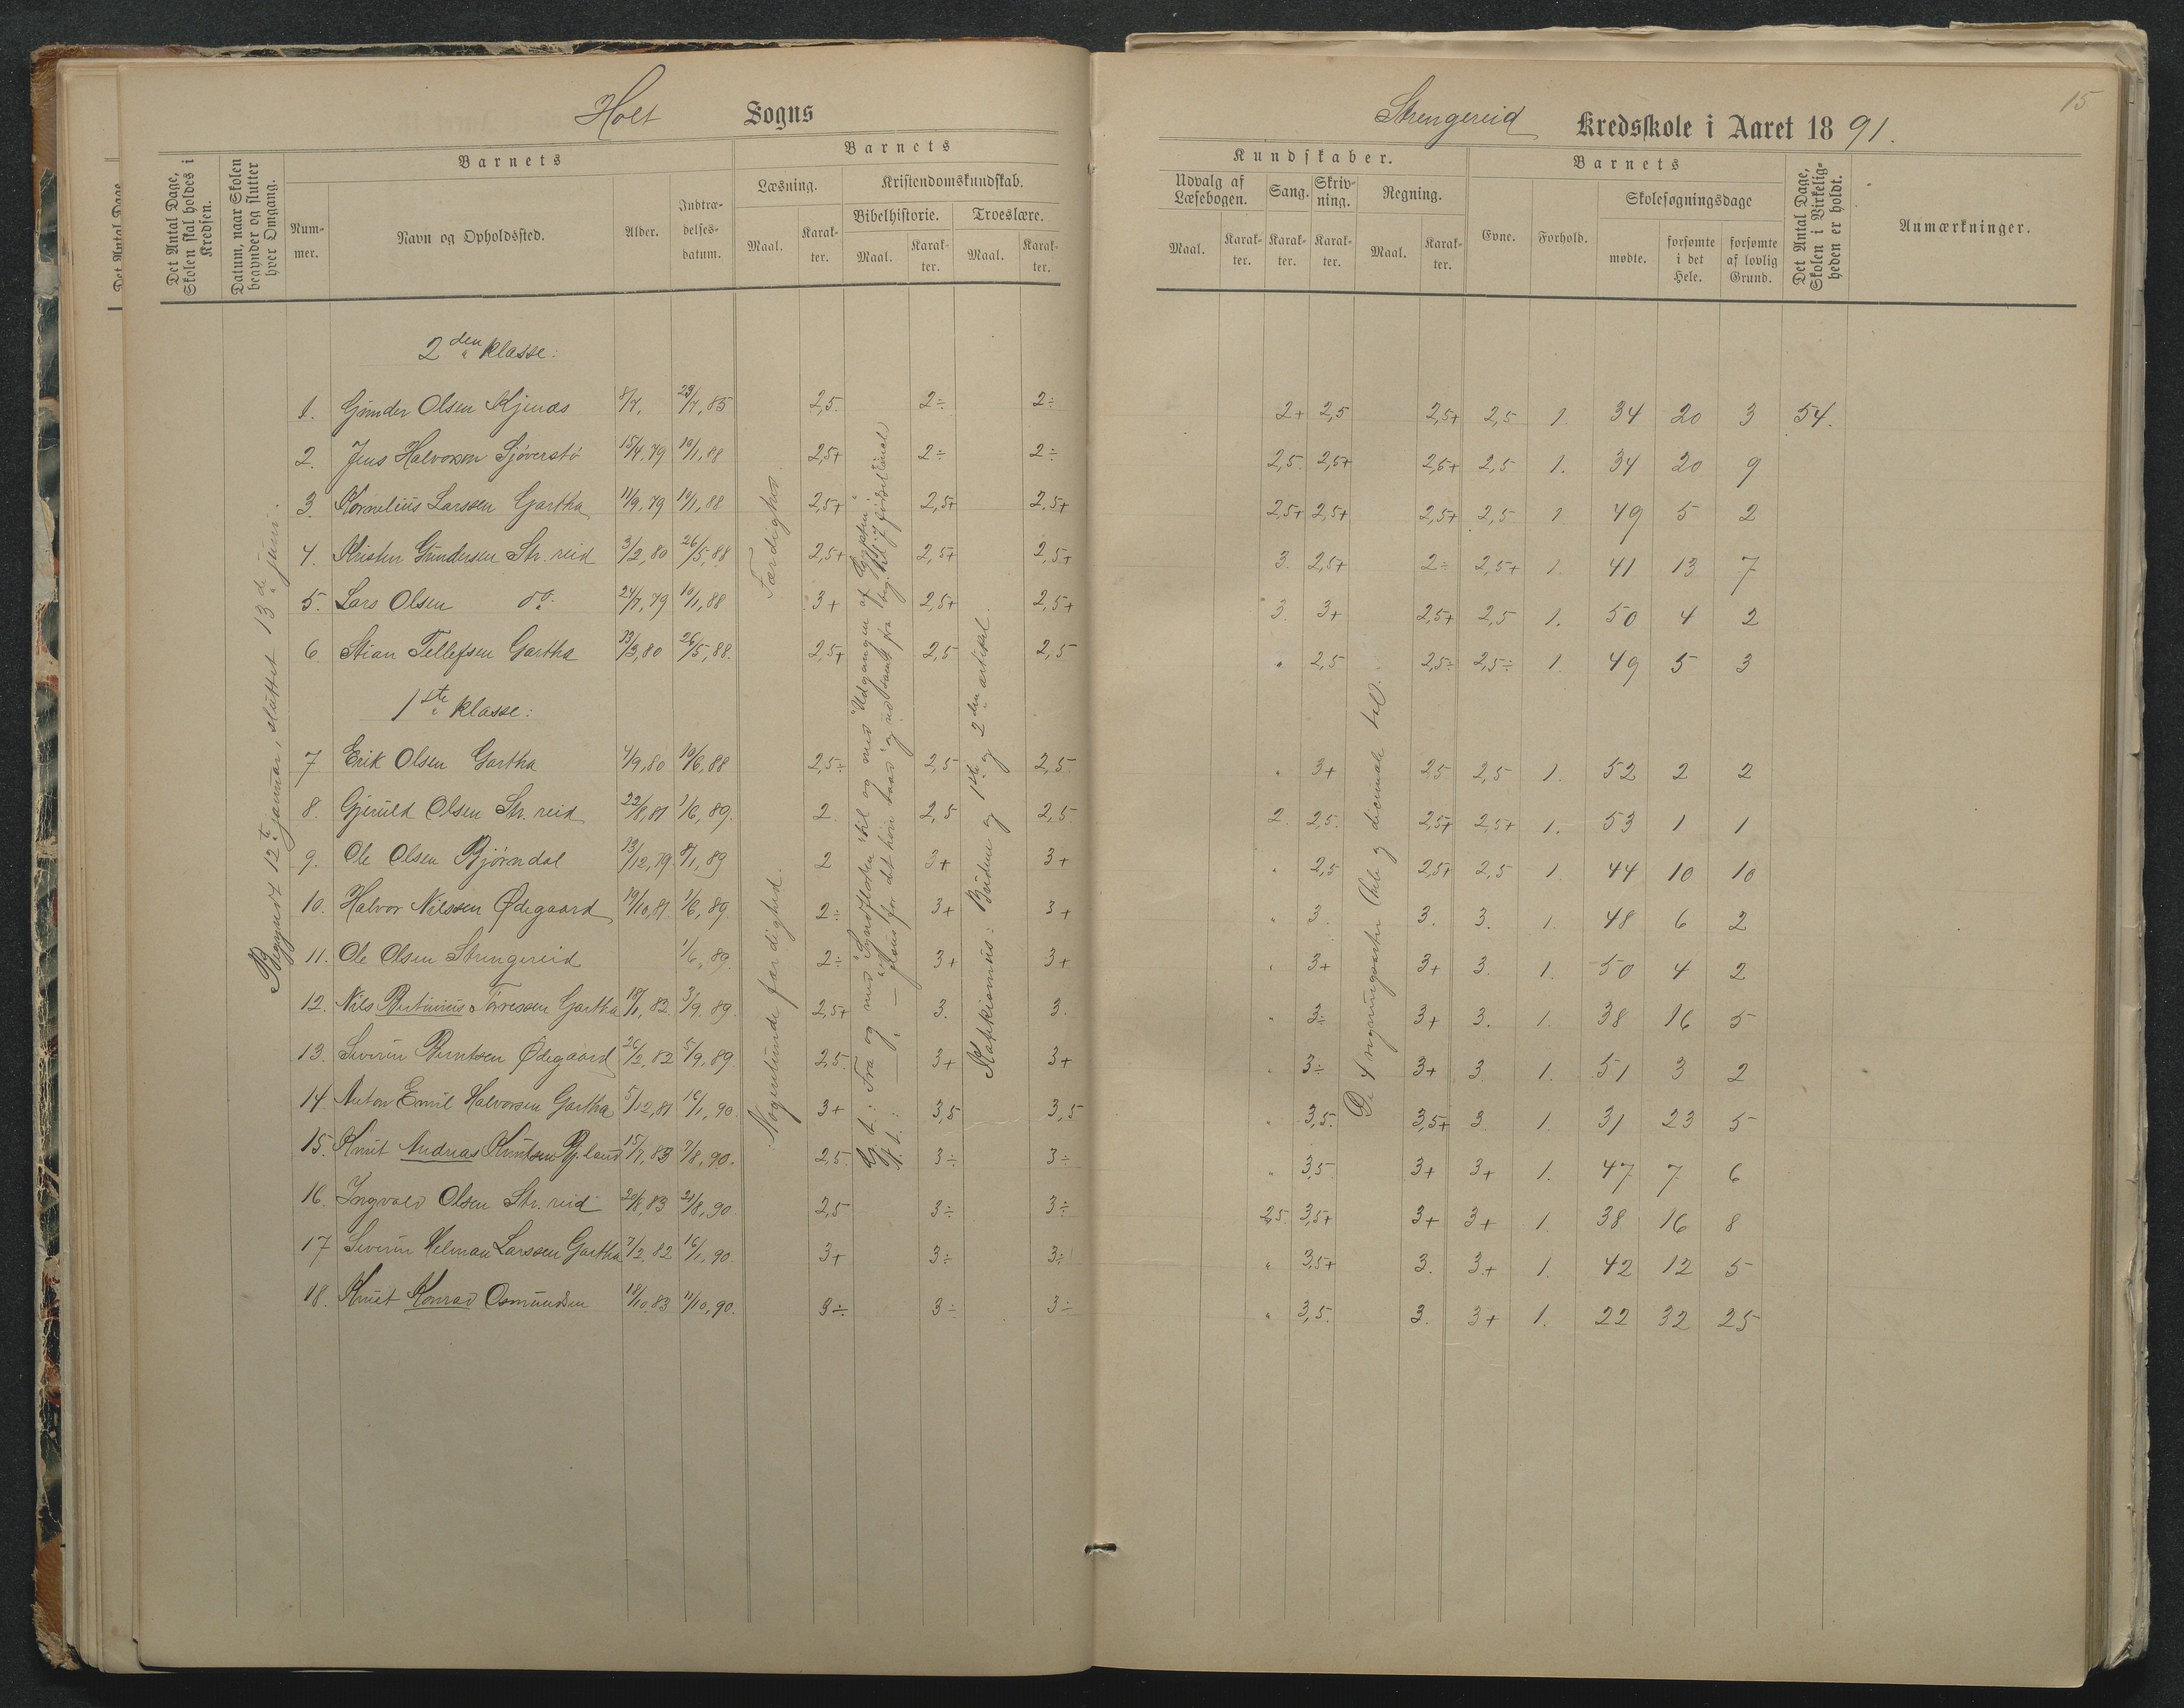 Holt Sogns
Strengereid Kredsskole i Aaret 1891.
15
Det Antal Dage, Skolen skal holdes i Kredsen.
Datum, naar Skolen begynder og slutter hver Omgang.
Barnets
Nummer.
Navn og Opholdssted.
Alder.
Indtrædelsesdatum.
Barnets
Læsning.
Maal.
Karakter.
Kristendomskundskab.
Bibelhistorie.
Maal.
Karakter.
Troeslære.
Maal.
Karakter.
Kundskaber.
Udvalg af Læsebogen.
Maal.
Karakter.
Sang.
Karakter.
Skrivning.
Karakter.
Regning.
Maal.
Karakter.
Barnets
Evne.
Forhold.
Skolesøgningsdage
mødte.
forsømte i det Hele.
forsømte af lovlig Grund.
Det Antal Dage, Skolen i Virkeligheden er holdt.
Anmærkninger.
Begyndt 12te januar, sluttet 13de juni.
2den klasse:
1. Gunder Olsen 8/7, 29/7,85 2,5 2÷ 2÷ 2+ 2,5 2,5+ 2,5 1. 34 20 3 54.
2. Jens Halvorsen 15/4,79 10/1,88 2,5+ 2÷ 2÷ 2,5 2,5+ 2,5+ 2,5 1. 34 20 9
3. Kornelius Larssen Gartha 11/9,79 10/1,88 2,5+ 2,5+ 2,5+ 2,5+ 2,5+ 2,5+ 2,5 1. 49 5 2
4. Kristen Gundersen Str.reid 3/2,80 26/5,88 2,5+ 2,5+ 2,5+ 3. 2,5+ 2÷ 2,5+ 1. 41 13 7
5. Lars Olsen do. 24/7,79 10/1,88 3+ 2,5+ 2,5+ 3 3+ 2,5+ 2,5 1. 50 4 2
6. Stian Tellefsen Gartha 13/3,80 26/5,88. 2,5+ 2,5 2,5 " 2,5 2,5÷ 2,5÷ 1. 49 5 3
1ste klasse:
7 Erik Olsen Gartha 4/9,80 10/6,88 2,5÷ 2,5 2,5 " 3+ 2,5 2,5 1. 52 2 2
8. Gjeruld Olsen Str.reid 22/8,81 1/6,89. 2 2,5 2,5 2. 2,5. 2,5+ 2,5+ 1. 53 1 1
9. Ole Olsen Bjørndal 13/12,79 8/1,89 2 3+ 3+ " 2,5 2,5+ 2,5 1. 44 10 10
10. Halvor Nilssen Ødegaard 19/10,81 1/6,89. 2÷ 3+ 3+ " 3. 3. 3. 1. 48 6 2
11. Ole Olsen Strengereid 1/6,89. 2÷ 3+ 3+ " 3+ 3+ 3. 1. 50 4 2
12. Nils Bertinius Torressen Gartha 18/1,82. 3/9,89. 2,5+ 3. 3. " 3÷ 3+ 3. 1. 38 16 5
13. Severin Berntsen Ødegaard 26/2,82 5/9,89. 2,5. 3+ 3+ " 3÷ 3+ 3. 1. 51 3 2
14 Anton Emil Halvorsen Gartha 5/12,81 16/1,90 3+ 3,5 3,5 " 3,5. 3,5+ 3. 1. 31 23 5
15. Knut Andreas Knutsen Bj.land 15/7,83 7/8,90. 2,5. 3÷ 3÷ " 3,5 3+ 3+ 1. 47 7 6
16. Ingvald Olsen Str.reid 20/8,83 21/8,90. 2,5 3÷ 3÷ 2,5. 3,5+ 3+ 3+ 1. 38 16 8
17 Severin Helman Larssen Gartha 7/2,82 16/1,90. 3+ 3÷ 3÷ " 3,5+ 3. 3+ 1. 42 12 5
18. Knut Konrad Osmundsen 18/10,83 11/10,90. 3÷ 3÷ 3÷ " 3,5. 3. 3+ 1. 22 32 25
Færdighed.
Nogenlunde færdighed.
G. t.: Fra og med "Syndfloden" til og med "Udgangen af Ægypten".
N. t.:
Katekismus: Budene og 1ste og 2den artikel.
De 4 regningsarter